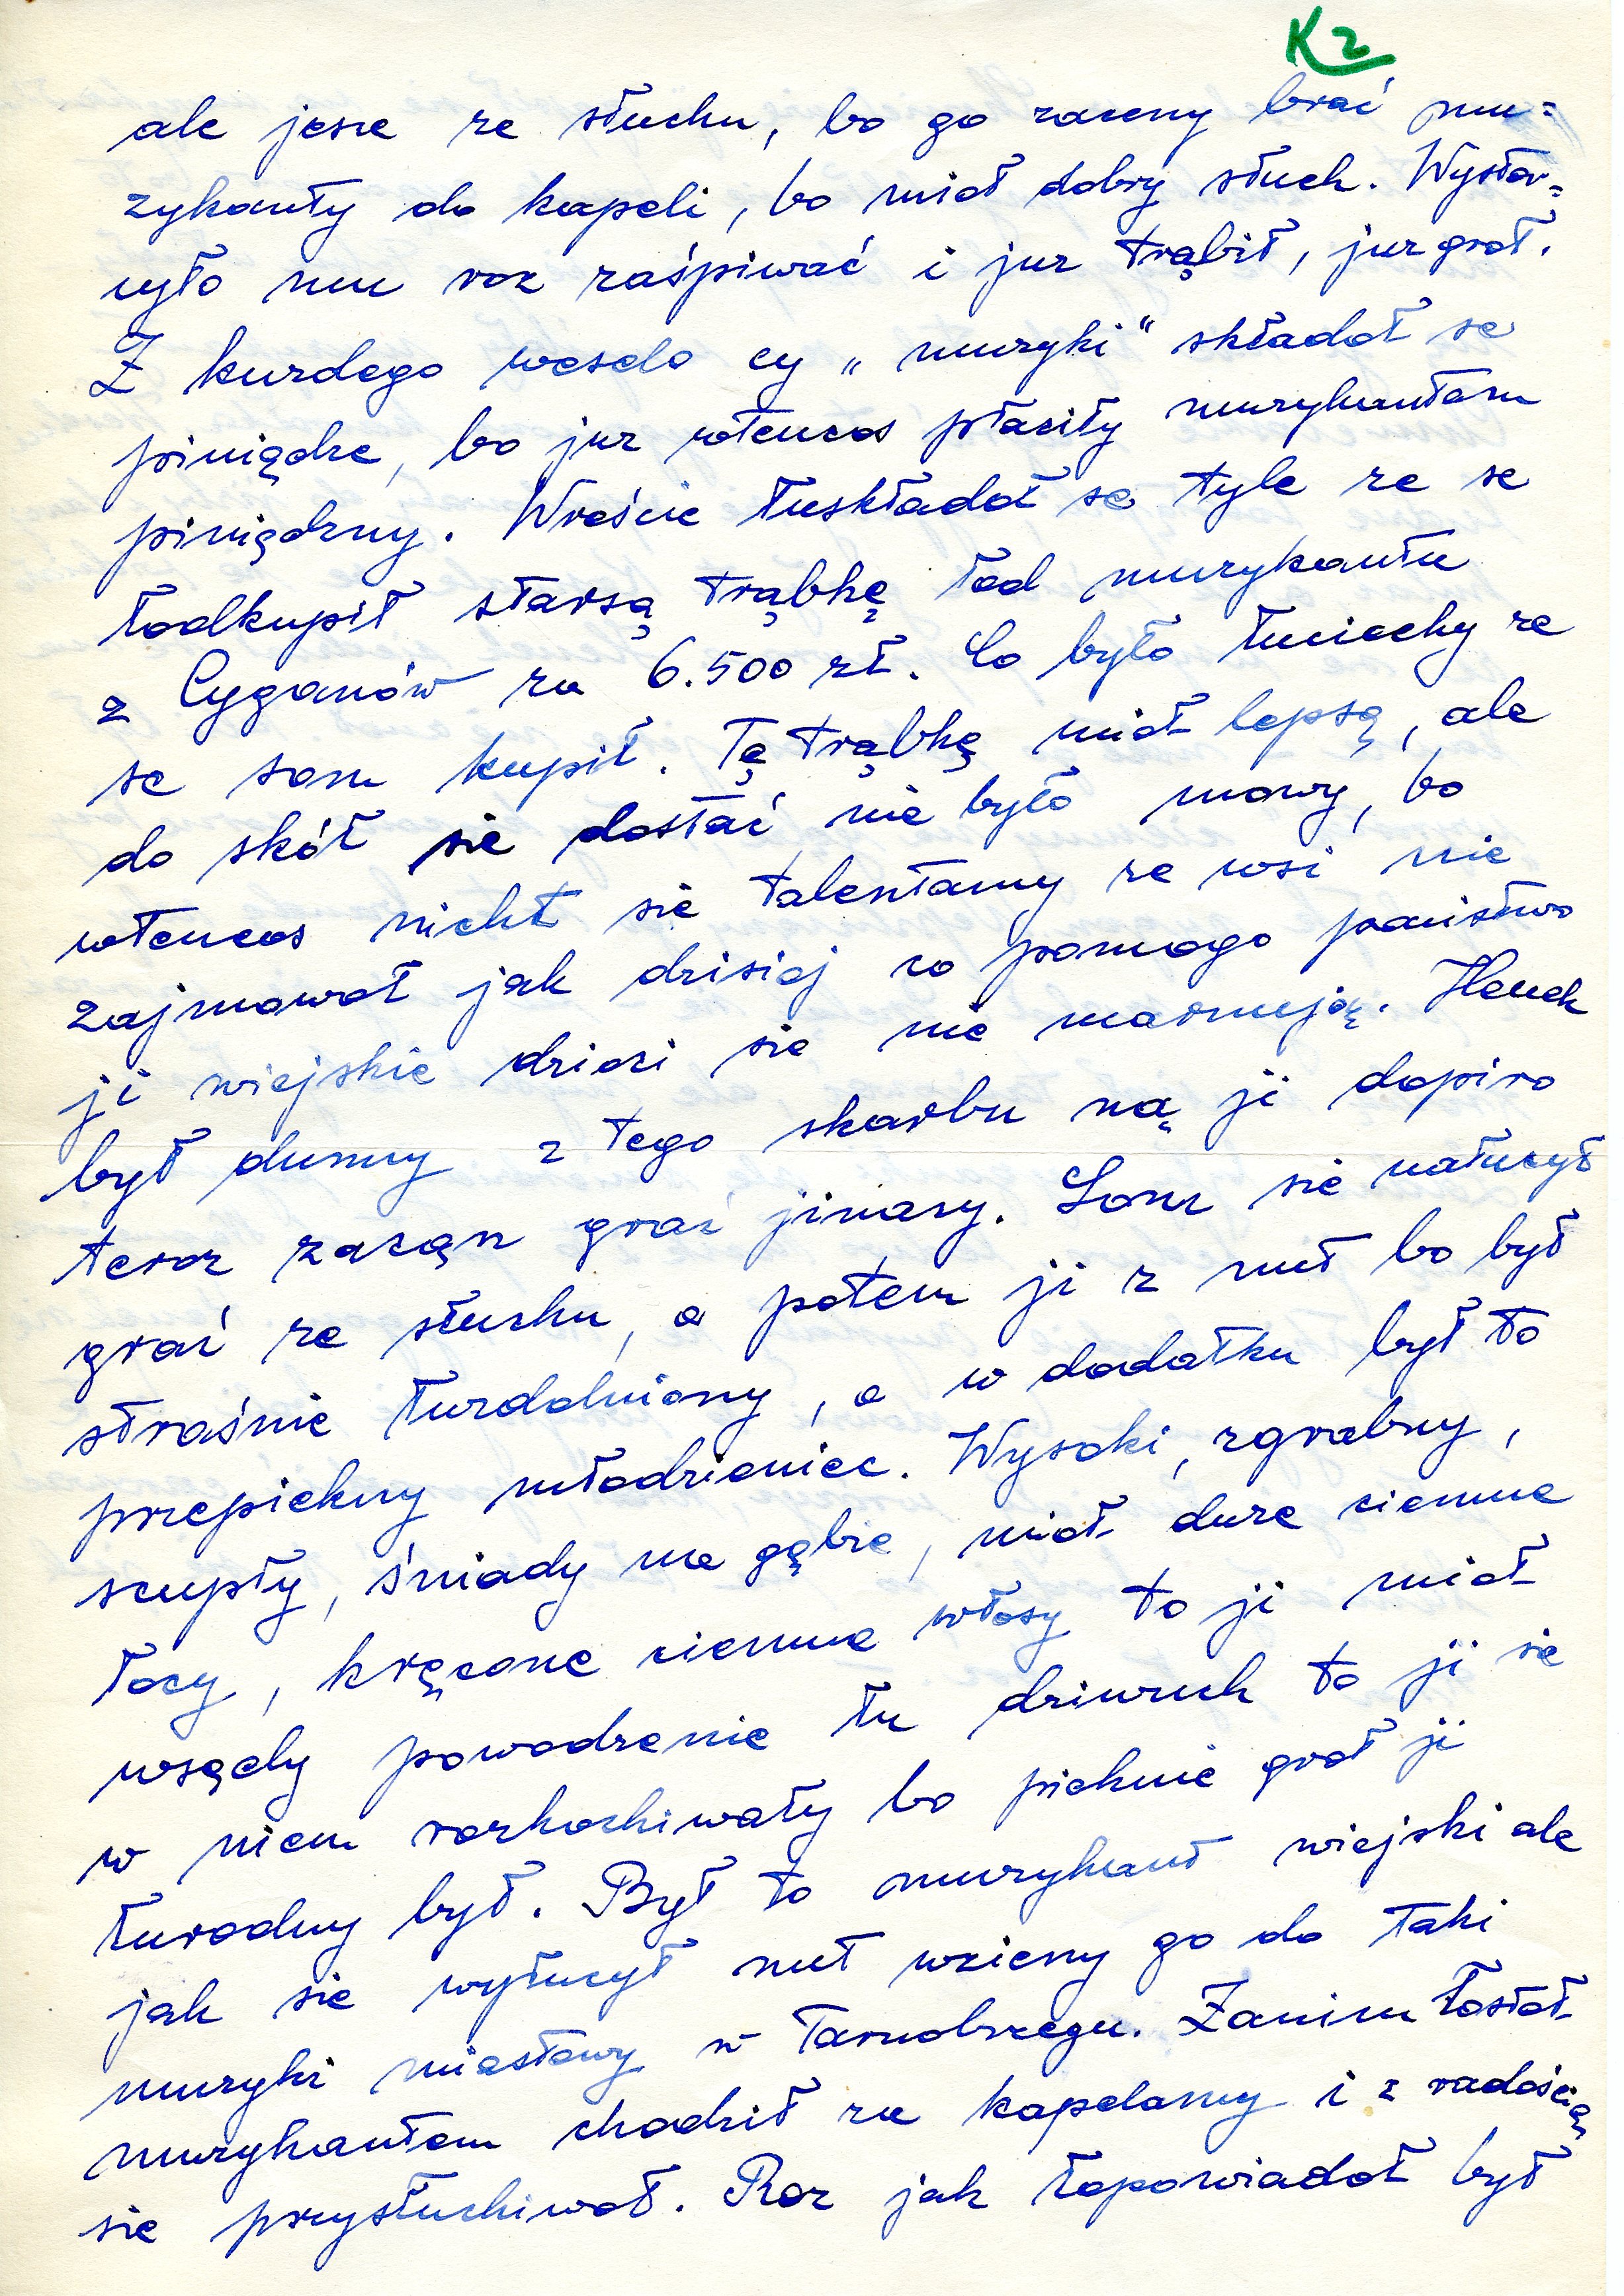 K2
ale jesce ze słuchu, bo go zaceny brać mu=
zykanty do kapeli, bo mioł dobry słuch. Wystar=
cyło mu roz zaśpiwać i juz trąbił, juz groł.
Z kuzdego wesela cy „muzyki" składoł se
piniądze, bo juz wtencos płaciły muzykantom
piniądzmy. Wreście łuskładoł se tyle ze se
łodkupił starsą trąbkę łod muzykantu
z Cyganów za 6.500 zł. Co było łuciechy ze
se som kupił. Tę trąbkę mioł lepsą, ale
do skół sie dostać nie było mowy, bo
wtencos nicht sie talentamy ze wsi nie
zajmowoł jak dzisioj co pomogo państwo
ji wiejskie dzieci sie nie marnują. Heniek
był dumny z tego skarbu no ji dopiro
teroz zacąn grać jinacy. Som sie nałucył
grać ze słuchu, a potem ji z nut bo był
straśnie łuzdolniony, a w dodatku był to
przepiekny młodzieniec. Wysoki, zgrabny,
scupły, śniady na gębie, mioł duze ciemne
łocy, kręcone ciemne włosy to ji mioł
wsędy powodzenie łu dziwuch to ji sie
w niem rozkochiwały bo pieknie groł ji
łurodny był. Był to muzykant wiejski ale
jak sie wyłucył nut wzieny go do taki
muzyki miastowy w Tarnobrzegu. Zanim łostoł
muzykantem chodził za kapelamy i z radością
sie przysłuchiwoł. Roz jak łopowiadoł był